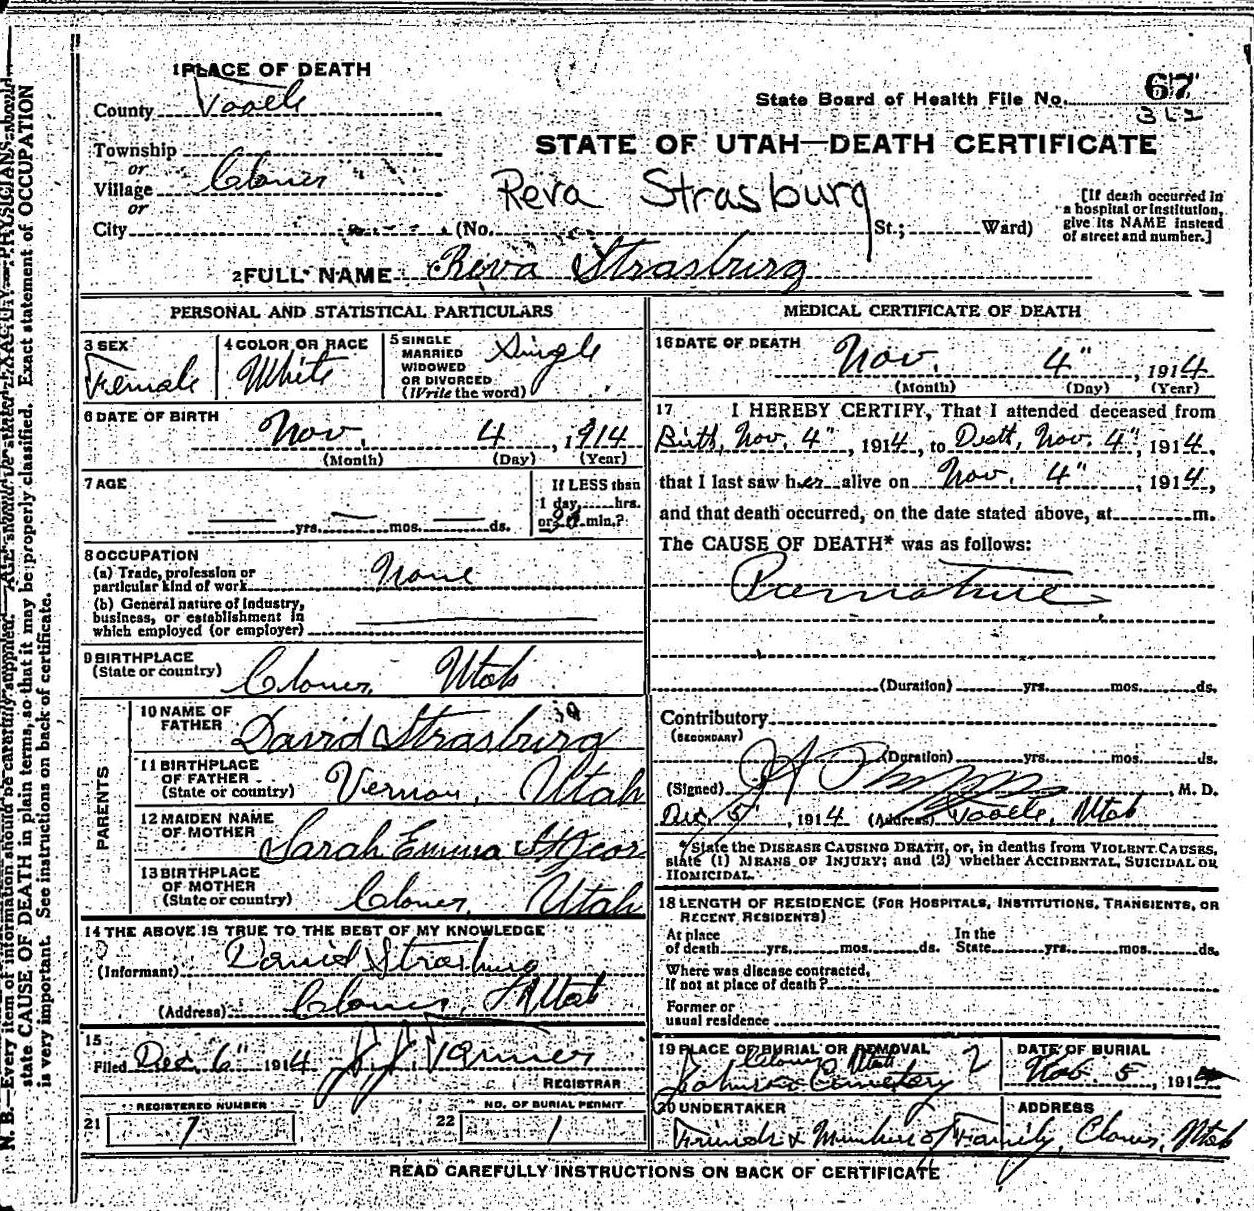 1 PLACE OF DEATH
County Tooele
State Board of Health File No. 67
362
STATE OF UTAH—DEATH CERTIFICATE
Township
or
Village Clover
or
City (No. St.; Ward)
Reva Strasburg
[If death occurred in
a hospital or institution,
give its NAME instead
of street and number.]
2 FULL NAME Reva Strasburg
PERSONAL AND STATISTICAL PARTICULARS
3 SEX
Female
4 COLOR OR RACE
White
5 SINGLE
MARRIED
WIDOWED
OR DIVORCED
(Write the word)
Single
6 DATE OF BIRTH
Nov. 4, 1914
(Month) (Day) (Year)
7 AGE
yrs. mos. ds.
If LESS than
1 day, hrs.
or min.?
8 OCCUPATION
(a) Trade, profession or
particular kind of work
None
(b) General nature of Industry,
business, or establishment in
which employed (or employer)
9 BIRTHPLACE
(State or country)
Clover, Utah
PARENTS
10 NAME OF
FATHER
David Strasburg
11 BIRTHPLACE
OF FATHER
(State or country)
Vernon, Utah
12 MAIDEN NAME
OF MOTHER
Sarah Emma St Jeor
13 BIRTHPLACE
OF MOTHER
(State or country)
Clover, Utah
14 THE ABOVE IS TRUE TO THE BEST OF MY KNOWLEDGE
(Informant) David Strasburg
(Address) Clover, Utah
15
Filed Dec. 6" 1914
REGISTRAR
21 REGISTERED NUMBER
7
22 NO. OF BURIAL PERMIT
1
MEDICAL CERTIFICATE OF DEATH
16 DATE OF DEATH
Nov. 4", 1914
(Month) (Day) (Year)
17 I HEREBY CERTIFY, That I attended deceased from
Birth, Nov. 4", 1914, to Death, Nov. 4", 1914,
that I last saw her alive on Nov. 4", 1914,
and that death occurred, on the date stated above, at m.
The CAUSE OF DEATH* was as follows:
Premature
(Duration) yrs. mos. ds.
Contributory
(SECONDARY)
(Duration) yrs. mos. ds.
(Signed) , M. D.
Dec. 5, 1914 (Address) Tooele, Utah
*State the DISEASE CAUSING DEATH, or, in deaths from VIOLENT CAUSES,
state (1) MEANS OF INJURY; and (2) whether ACCIDENTAL, SUICIDAL OR
HOMICIDAL.
18 LENGTH OF RESIDENCE (FOR HOSPITALS, INSTITUTIONS, TRANSIENTS, OR
RECENT RESIDENTS)
At place
of death yrs. mos. ds.
In the
State yrs. mos. ds.
Where was disease contracted,
If not at place of death?
Former or
usual residence
19 PLACE OF BURIAL OR REMOVAL
Clover Utah
Cemetery
DATE OF BURIAL
Nov. 5, 1914
20 UNDERTAKER
Friends & Members of Family,
ADDRESS
Clover, Utah
READ CAREFULLY INSTRUCTIONS ON BACK OF CERTIFICATE
N. B.—Every item of information should be carefully supplied. AGE should be stated EXACTLY. PHYSICIANS should
state CAUSE OF DEATH in plain terms, so that it may be properly classified. Exact statement of OCCUPATION
is very important. See instructions on back of certificate.